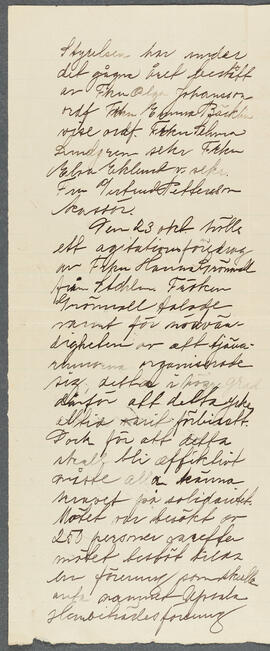 Styrelsen har under
det gågna året bestått
av Frkn Olga Johansson
ordf Frkn Emma Bäcklin
vise ordf. Frkn Selma
Lundgren sekr Frkn
Elsa Eklund v. sekr.
Fru Gertrud Pettersson
kassör.
Den 23 okt hölls
ett agitationsföredrag
av Frkn Hanna Grönvall
från Sthlm Fröken
Grönvall talade
varmt för nödvän-
digheten av att tjäna-
rinnorna organiserade
sig, detta i hög grad
därför att detta yrke
alltid varit förbisett.
Dock för att detta
skall bli effektivt
måste alla känna
kravet på solidaritet.
Mötet var besökt av
250 personer varefter
mötet beslöt bilda
en förening som skulle
namnet Upsala
Hembiträdesförening